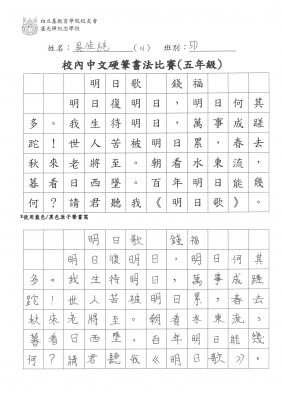 柏立基教育學院校友會
盧光輝紀念學校
姓名： (4) 班別：5D
校內中文硬筆書法比賽(五年級)
明日歌 錢福
明日復明日，明日何其
多。我生待明日，萬事成蹉
跎！世人苦被明日累，春去
秋來老將至。朝看水東流，
暮看日西墜。百年明日能幾
何？請君聽我《明日歌》。
*使用藍色/黑色原子筆書寫
明日歌 錢福
明日復明日，明日何其
多。我生待明日，萬事成蹉
跎！世人苦被明日累，春去
秋來老將至。朝看水東流，
暮看日西墜。百年明日能幾
何？請君聽我《明日歌》。